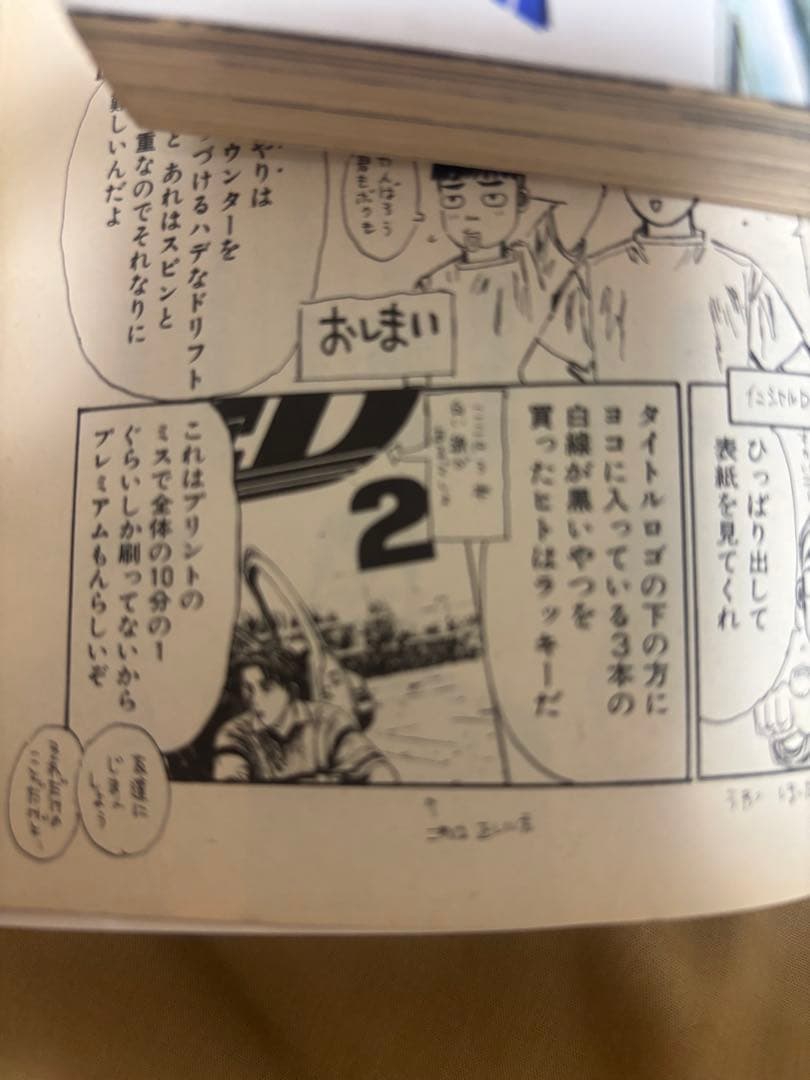 やりは
ウンターを
づけるハデなドリフト
と あれはスピンと
重なのでそれなりに
難しいんだよ
がんばろう
おしまい
イニシャルD
ひっぱり出して
表紙を見てくれ
タイトルロゴの下の方に
ヨコに入っている3本の
白線が黒いやつを
買ったヒトはラッキーだ
D
2
これはプリントの
ミスで全体の10分の1
ぐらいしか刷ってないから
プレミアムもんらしいぞ
友達に
じまん
しよう
これは正しい方